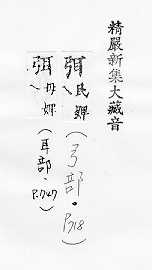 精嚴新集大藏音
弭民婢（弓部・P.18）
弭婢（耳部、P.747）